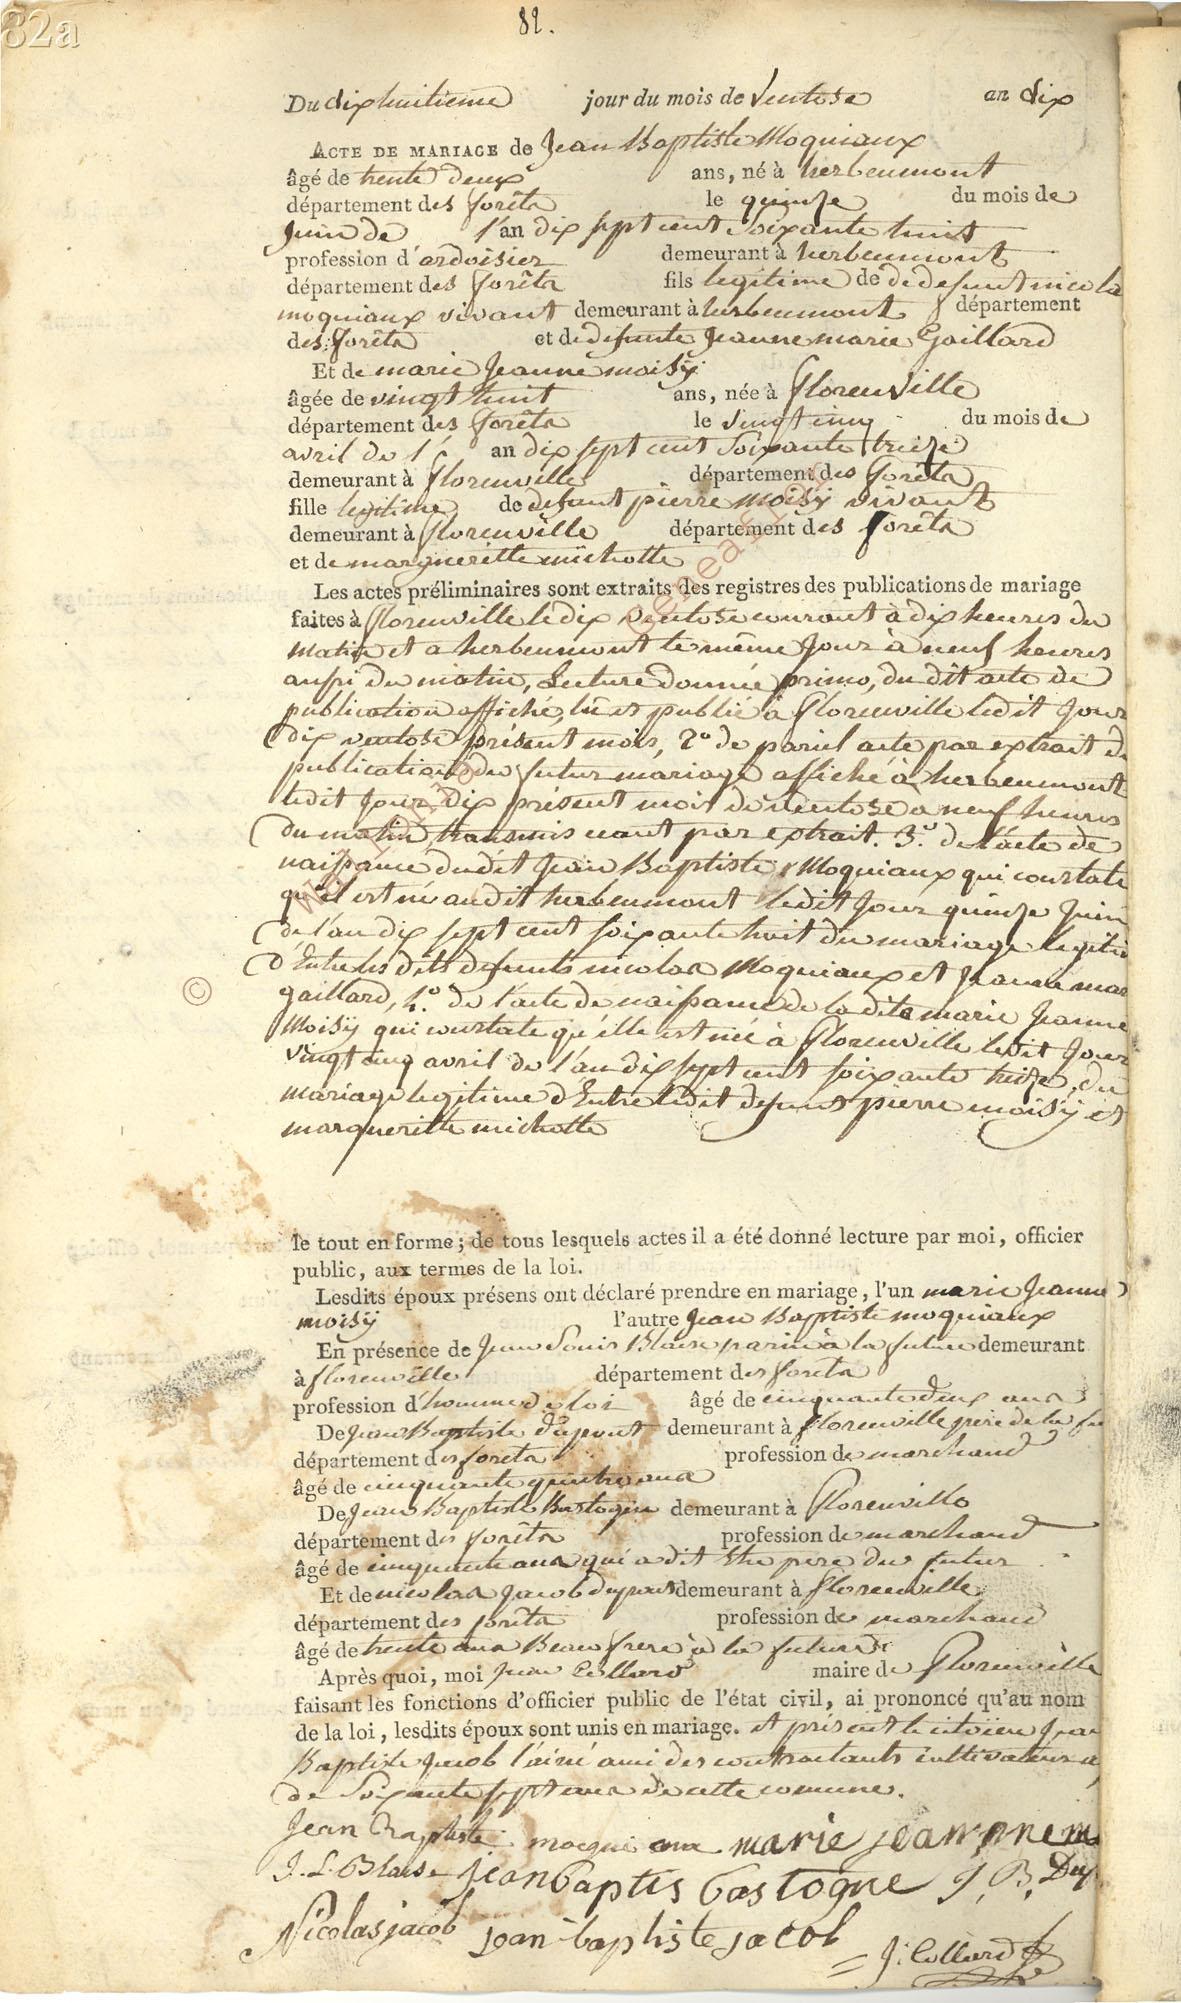 82a
82.
Du dix huitieme jour du mois de Ventose an dix
ACTE DE MARIAGE de Jean Baptiste Moquiaux
âgé de trente deux ans, né à herbeumont
département des forêts le quinze du mois de
Juin de l'an dix sept cent Soixante huit
profession d'ardoisier demeurant à herbeumont
département des forêts fils legitime de de defunt nicola
moquiaux vivant demeurant à herbeumont département
des forêts et de defunte Jeanne marie Gaillard
Et de marie Jeanne moisÿ
âgée de vingt huit ans, née à florenville
département des forêts le vingt cinq du mois de
avril de l' an dix sept cent Soixante treize
demeurant à florenville département des forêts
fille legitime de defunt pierre moisÿ vivant
demeurant à florenville département des forêts
et de margueritte michotte
Les actes préliminaires sont extraits des registres des publications de mariage
faites à florenville le dix ventose courant à dix heures du
matin et a herbeumont le même Jour à neuf heures
aussi du matin, Lecture donnée primo, du dit acte de
publication affiché, lu et publié à florenville ledit Jour
dix ventose présent mois, 2º de pariel acte par extrait de
publication du futur mariage affiché à herbeumont
ledit Jour dix présent mois de ventose a neuf heures
du matin, transmis par extrait. 3º. de l'acte de
naissance dudit Jean Baptiste Moquiaux qui constate
qu'il est né audit herbeumont ledit Jour quinze Juin
de l'an dix sept cent soixante huit du mariage legiti
d'Entre les dits defunts nicolas Moquiaux et Jeanne mar
gaillard, 4º. de l'acte de naissance de la dite marie Jeanne
Moisÿ qui constate qu'elle est née à florenville ledit Jour
vingt cinq avril de l'an dix sept cent soixante treize, du
mariage legitime d'Entre ledit defunt pierre moisÿ et
margueritte michotte
le tout en forme; de tous lesquels actes il a été donné lecture par moi, officier
public, aux termes de la loi.
Lesdits époux présens ont déclaré prendre en mariage, l'un marie Jeanne
moisÿ l'autre Jean Baptiste moquiaux
En présence de Jean Louis Blaise parin à la future demeurant
à florenville département des forêts
profession d'homme de loi âgé de cinquante deux ans
De Jean Baptiste dupont demeurant à florenville pere de la fu
département des forêts profession de marchand
âgé de cinquante quatre ans
De Jean Baptiste Bastogne demeurant à florenville
département des forêts profession de marchand
âgé de cinquante ans qui a dit Etre pere du futur
Et de nicolas Jacob dupont demeurant à florenville
département des forêts profession de marchand
âgé de trente ans Beau frere à la future
Après quoi, moi Jean Collard maire de florenville
faisant les fonctions d'officier public de l'état civil, ai prononcé qu'au nom
de la loi, lesdits époux sont unis en mariage. et présent le citoïen Jean
Baptiste Jacob l'ainé ami des contractants cultivateur a
de Soixante sept ans de cette comune.
Jean Baptiste moquiaux marie jeanne m
J. L. Blaise jean baptis bastogne J. B. Dup
Nicolas jacob jean baptiste jacob
J: Collard
©